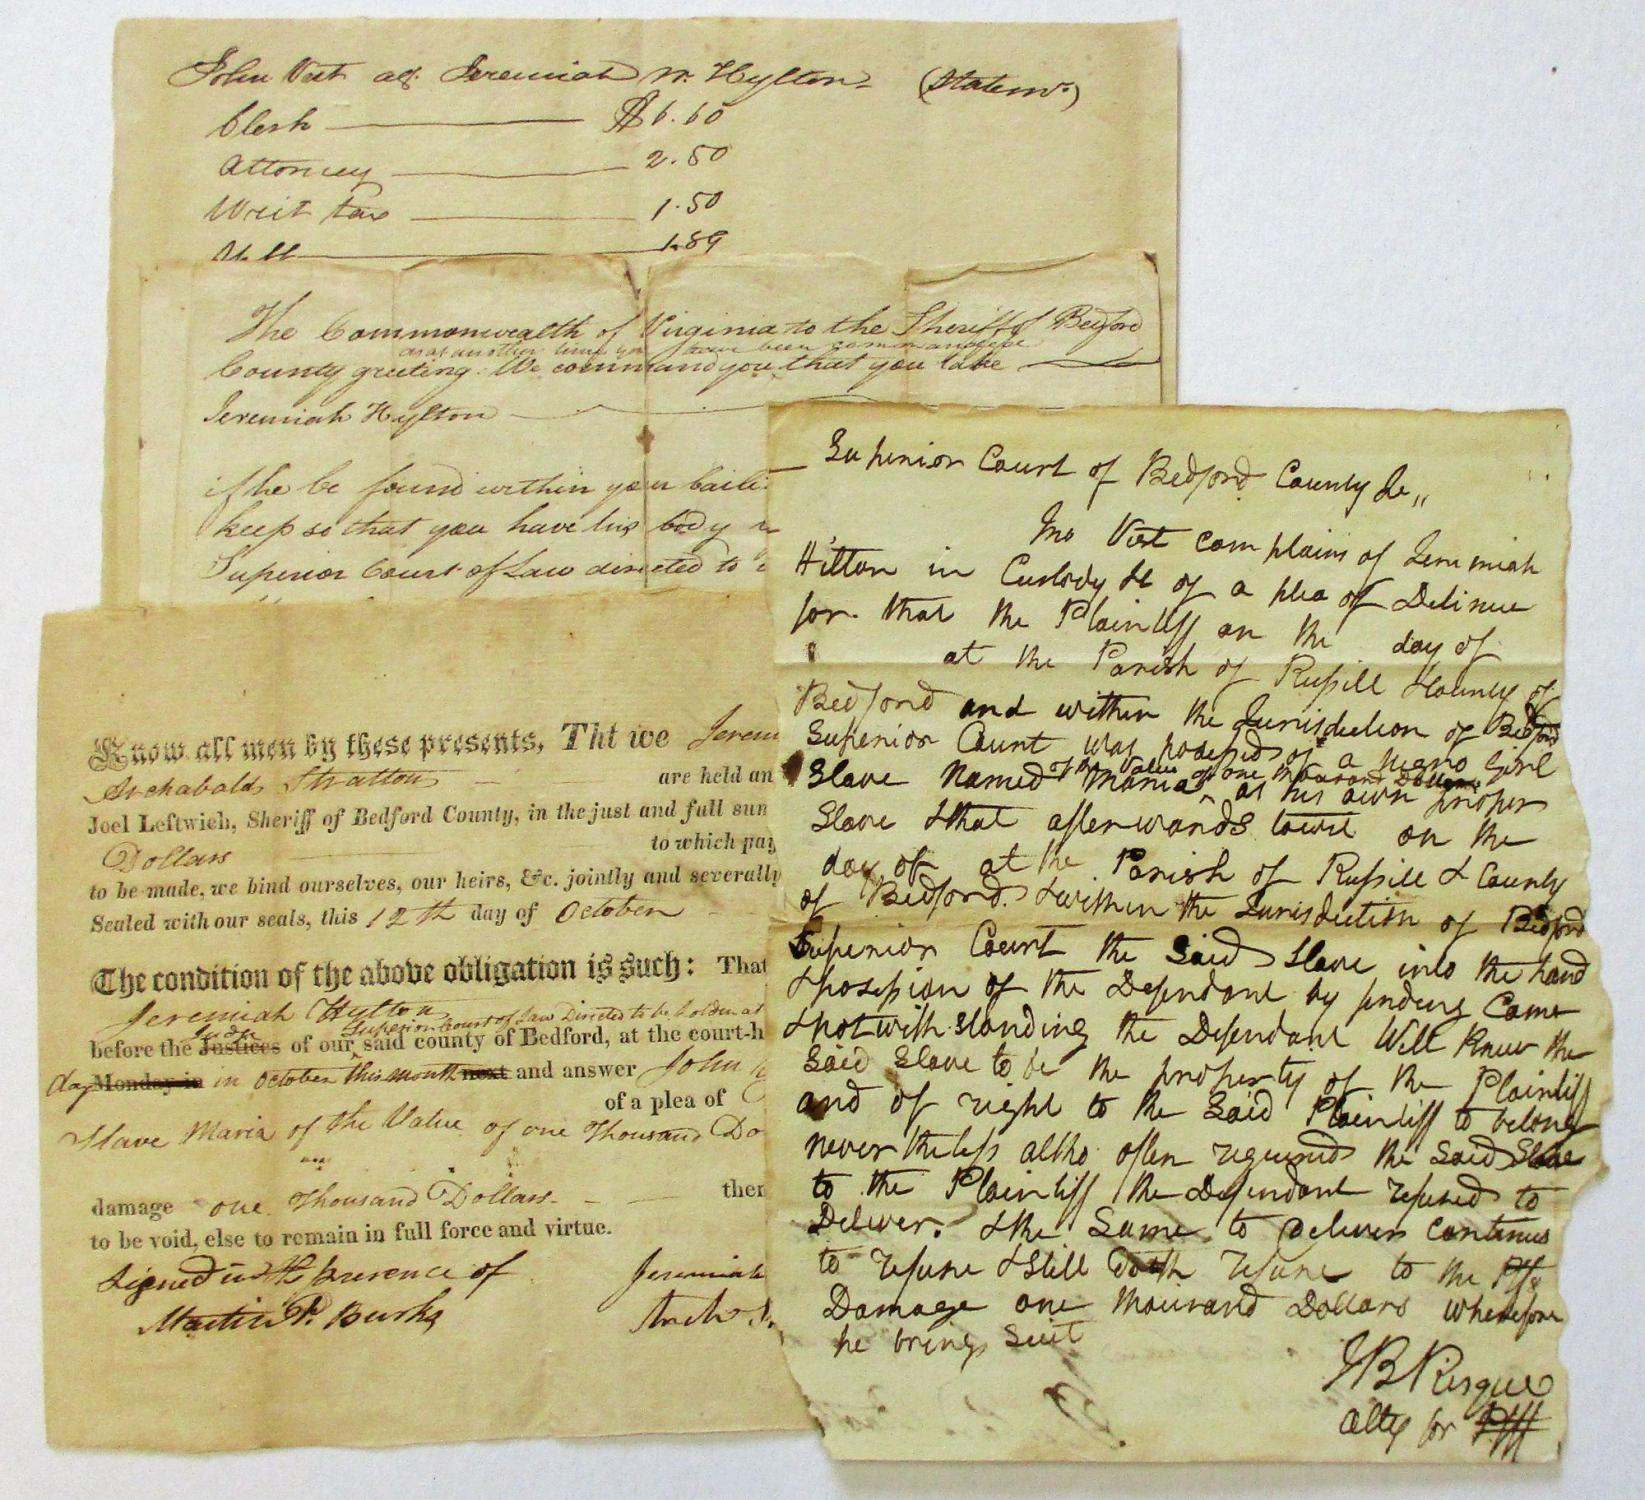 John Vest agt Jeremiah W. Hylton (Statemt.)
Clerk $6.60
Attorney 2.50
Writ tax 1.50
1.89
The Commonwealth of Virginia to the Sheriff of Bedford
as at another time you have been commanded
County greeting: We command you, that you take
Jeremiah Hylton
if he be found within your baili
keep so that you have his body
Superior Court of Law directed to
Know all men by these presents, Tht we Jerem
Archabald Stratton are held an
Joel Leftwich, Sheriff of Bedford County, in the just and full sum
Dollars to which pay
to be made, we bind ourselves, our heirs, &c. jointly and severally
Sealed with our seals, this 12th day of October
The condition of the above obligation is such: That
Jeremiah Hylton
Judge Superior Court of Law Directed to be holden at
before the Justices of our said county of Bedford, at the court-h
day Monday in in October this month next and answer John
of a plea of
Slave Maria of the Value of one Thousand Do
damage one Thousand Dollars then
to be void, else to remain in full force and virtue.
Signed in the presence of Jeremiah
Martin P. Burks Arch S
Superior Court of Bedford County
Jno Vest complains of Jeremiah
Hilton in Custody &c of a plea of Detinue
for that the Plaintiff on the day of
at the Parish of Russill & County of
Bedford and within the Jurisdiction of Bedford
Superior Court was possessed of a negro Girl
of the value of one thousand Dollars
Slave Named Maria ^ as his own proper
Slave & that afterwards towit on the
day of at the Parish of Russill & County
of Bedford & within the Jurisdiction of Bedford
Superior Court the Said Slave into the hand
& possession of the Defendant by finding Came
& notwithstanding the Defendant Well Knew the
Said Slave to be the property of the Plaintiff
and of right to the Said Plaintiff to belong
never theless altho often required the Said Slave
to the Plaintiff the Defendant refused to
Deliver. & the Same to deliver continues
to refuse & Still doth refuse to the Plffs
Damage one thousand Dollars wherefore
he brings Suit
JB Risque
Atty for Plff